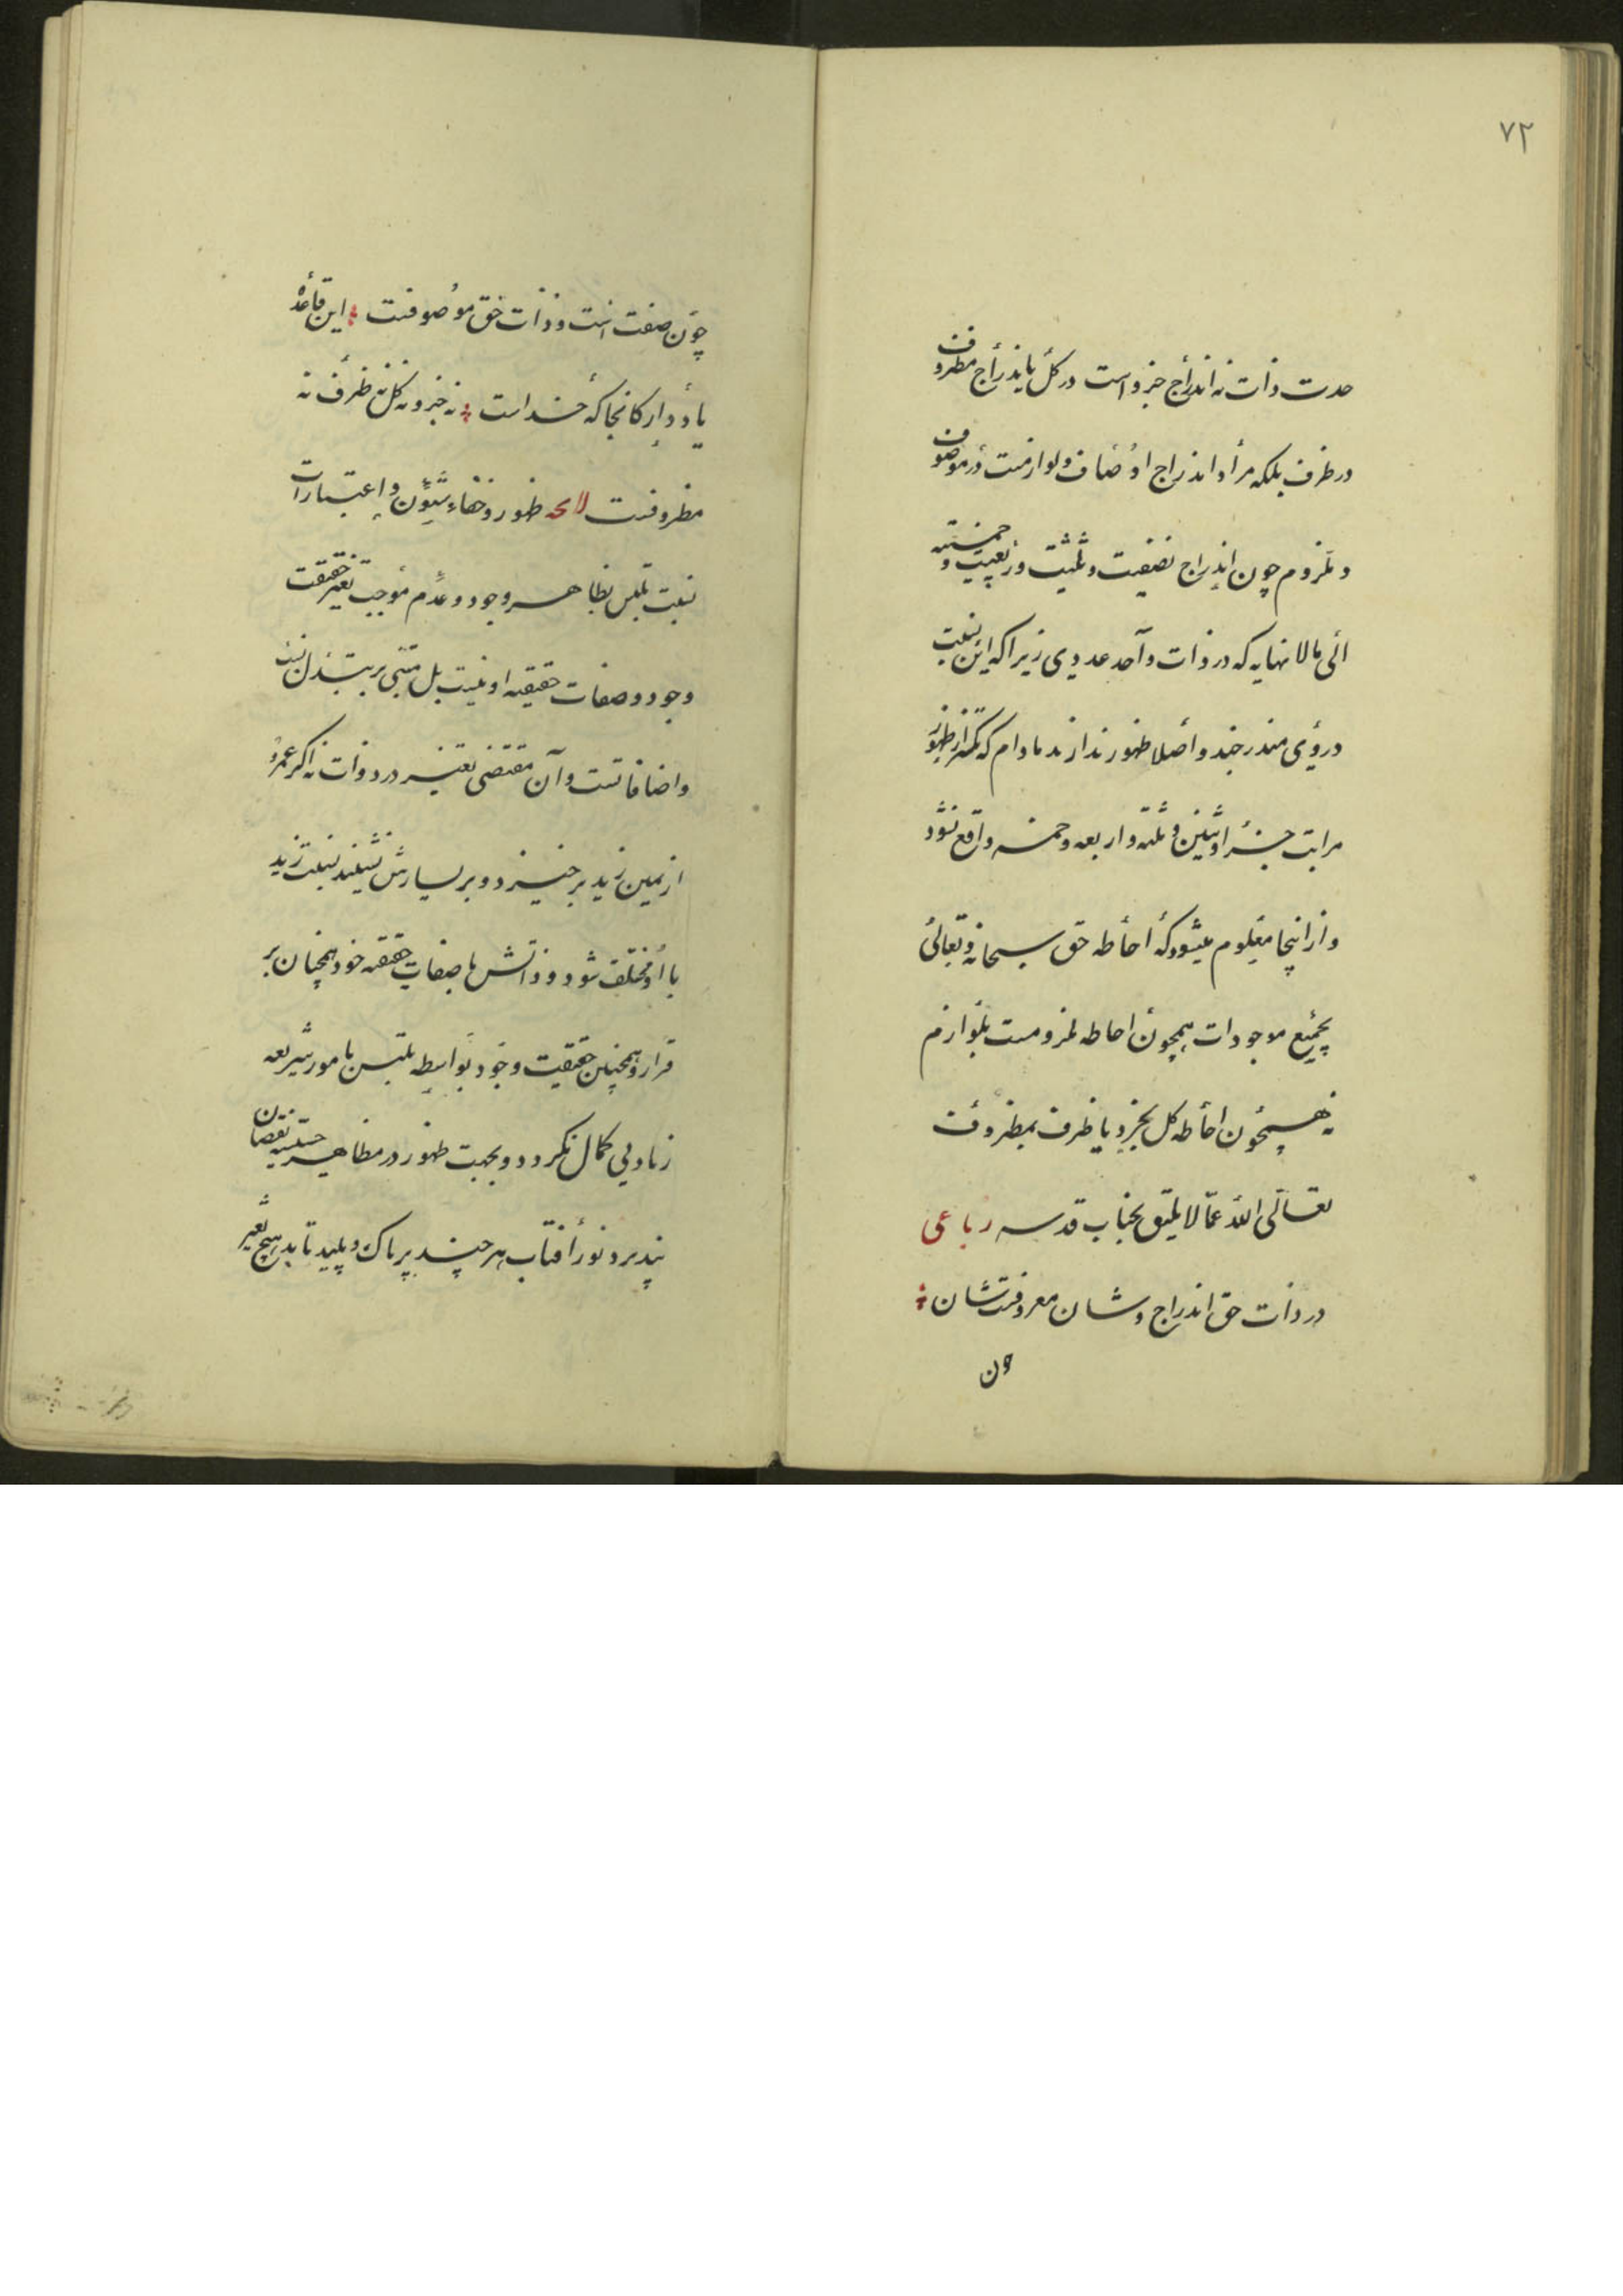 ۷۲
حدت ذات نه اندراج جزو است در کل یا اندراج مظروف
در ظرف بلکه مراد اندراج اوصاف و لوازمست در موصوف
و ملزوم چون اندراج نصفیت و ثلثیت و ربعیت و خمسیه
الی مالا نهایه که در ذات واحد عددی زیرا که این نسبت
در وی مندرجند و اصلا ظهور ندارند مادام که تکرار ظهور
مراتب جزء اثنین و ثلثه و اربعه و خمسه واقع نشود
و از اینجا معلوم میشود که احاطه حق سبحانه و تعالی
بجمیع موجودات همچون احاطه ملزومست بلوازم
نه همچون احاطه کل بجزو یا ظرف بمظروفت
تعالی الله عما لا یلیق بجناب قدسه رباعی
در ذات حق اندراج و شان معروفتشان
ون
چون صفت است و ذات حق موصوفت این قاعده
یاد دار کانجا که خداست نه جزو نه کل نه ظرف نه
مظروفت لایحه ظهور و خفاء شیون و اعتبارات
نسبت تلبس بظاهر وجود و عدم موجب تغیر حقیقت
وجود و صفات حقیقیه او نیست بل مبتنی بر تبدل نسب
و اضافاتست و آن مقتضی تغییر در ذات نه اگر عمرو
از یمین زید برخیزد و بر یسارش نشیند نسبت زید
با او مختلف شود و ذاتش با صفات حقیقه خود همچنان بر
قرار و همچنین حقیقت وجود بواسطه تلبس بامور شریعه
زیادتی کمال نگردد و بجهت ظهور در مظاهر خسیسه نقصان
نپذیرد نور آفتاب هر چند بر پاک و پلید تابد هیچ تغیر